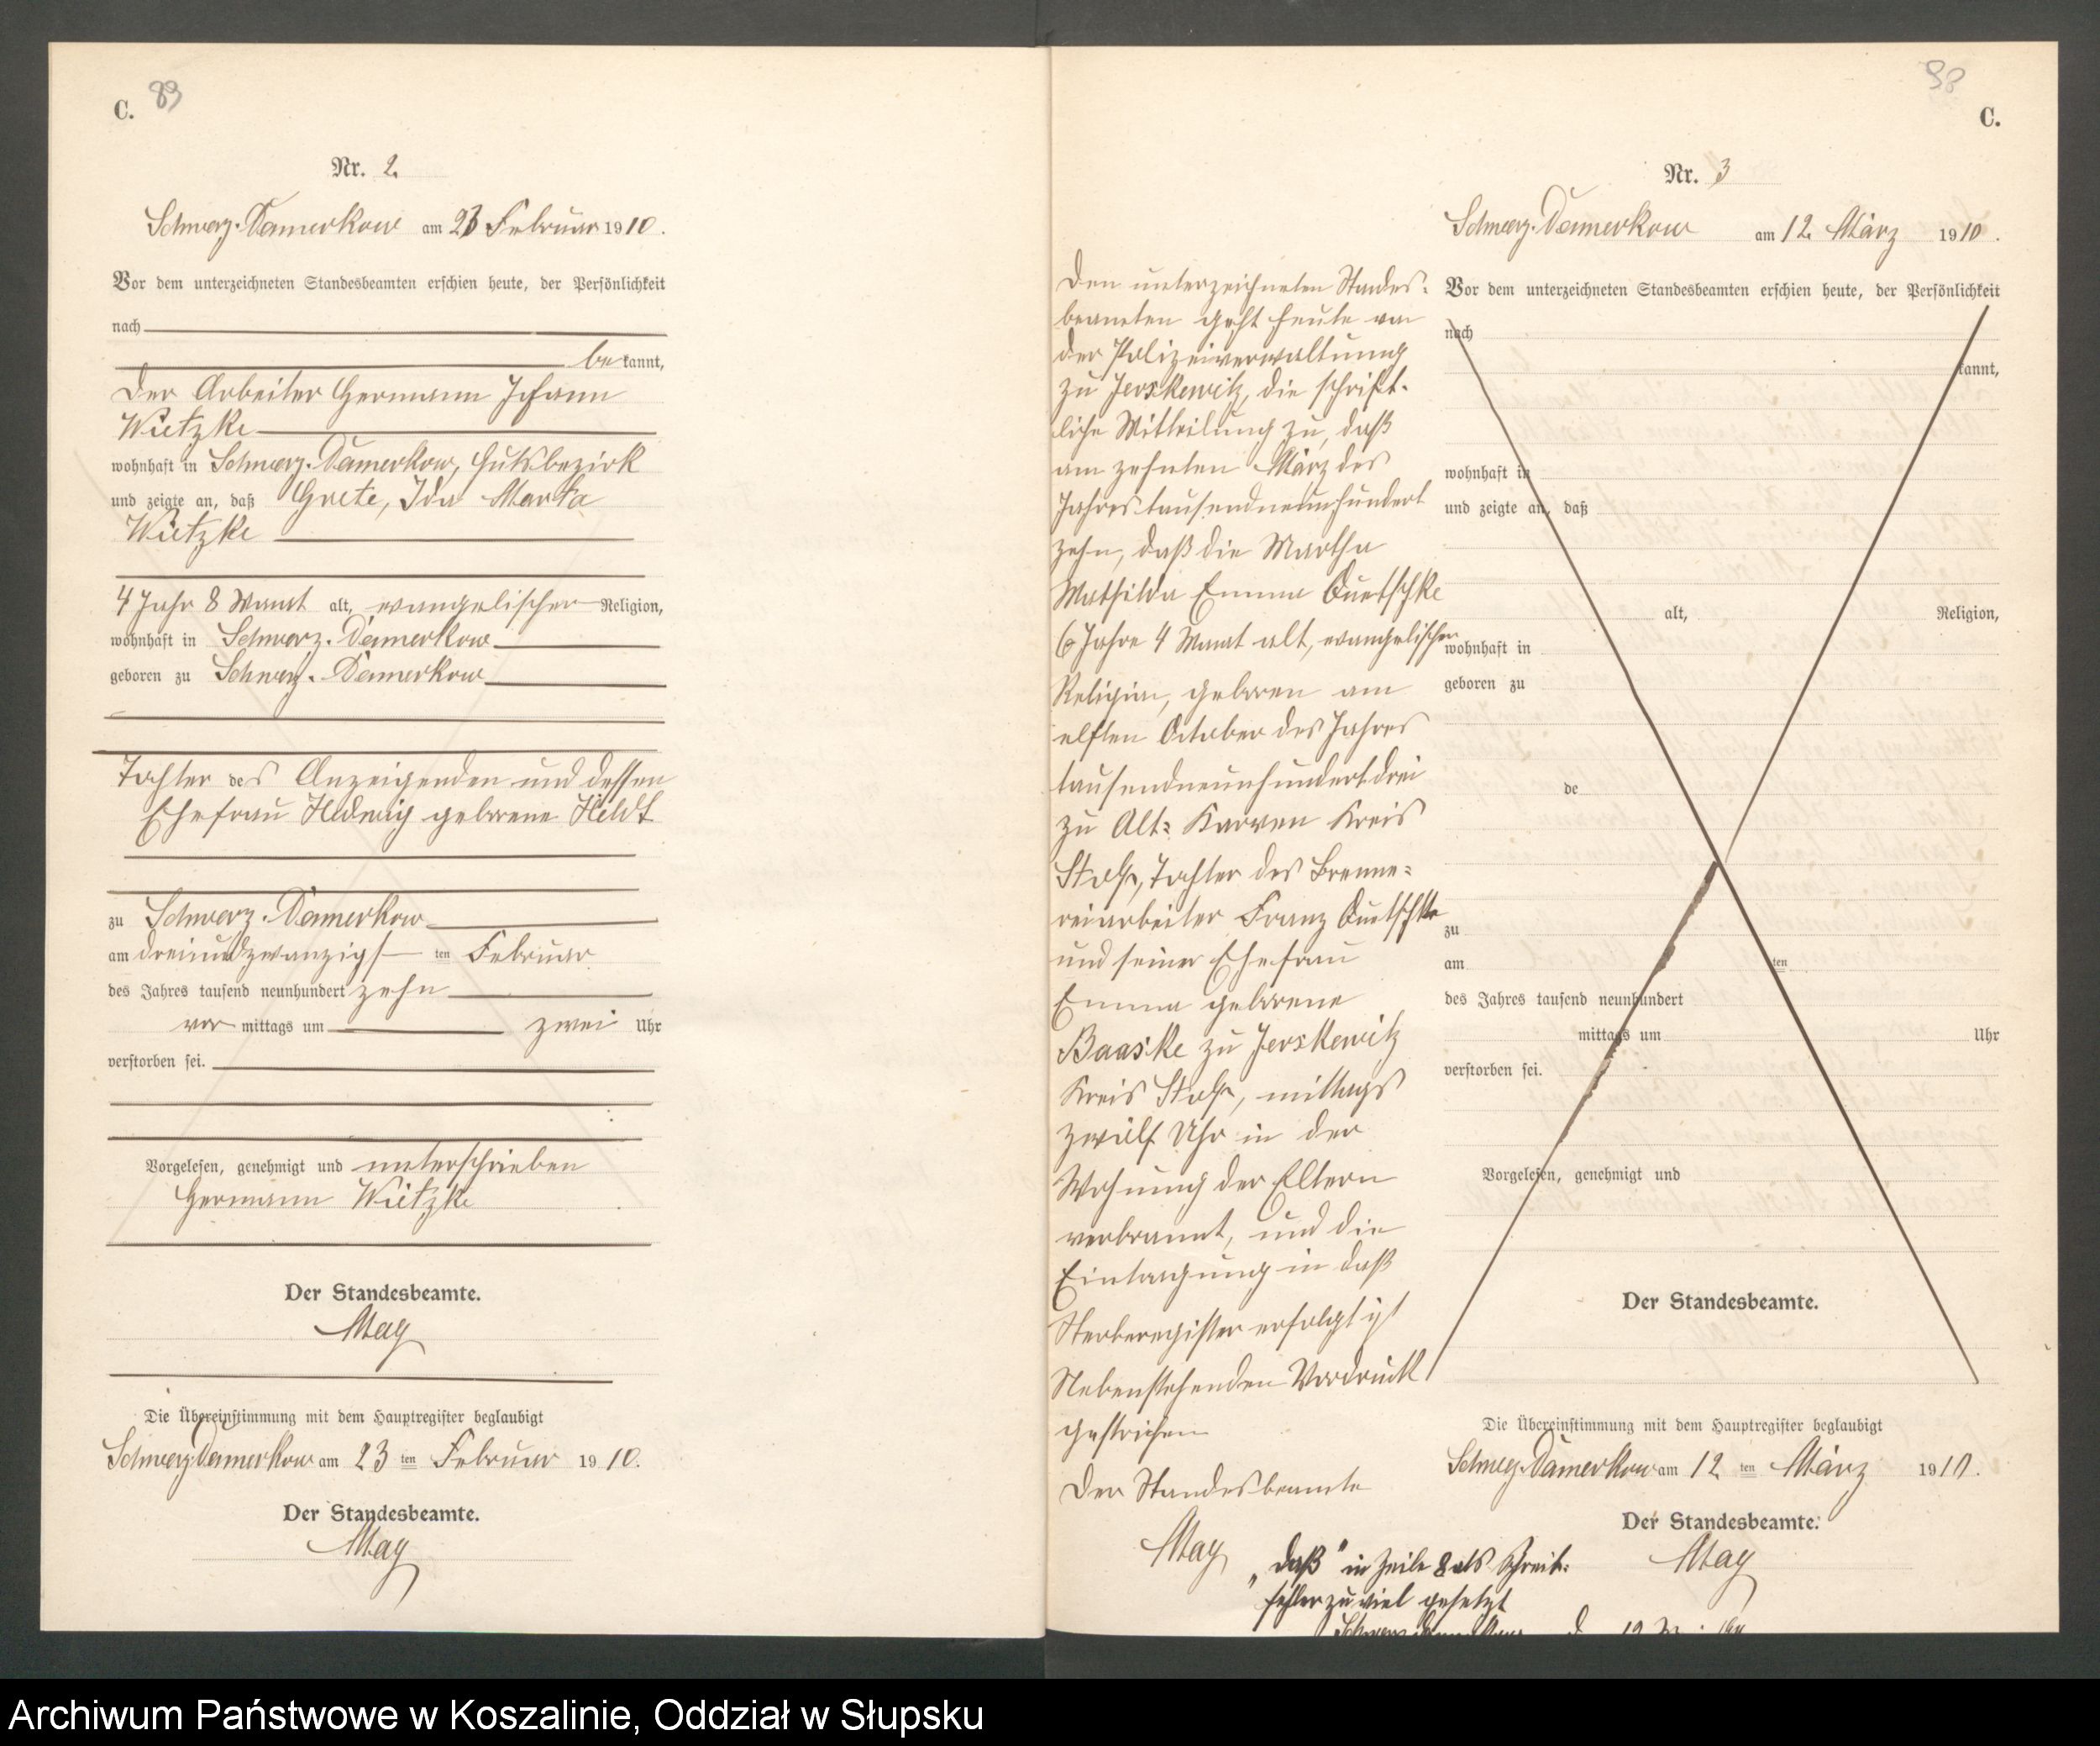 C. 89
Nr. 2.
Schwarz-Damerkow am 23 Februar 1910.
Vor dem unterzeichneten Standesbeamten erschien heute, der Persönlichkeit
nach
bekannt,
der Arbeiter Hermann Johann
Wietzke
wohnhaft in Schwarz-Damerkow, Gutsbezirk
und zeigte an, daß Grete, Ida Marta
Wietzke
4 Jahr 8 Monat alt, evangelischer Religion,
wohnhaft in Schwarz-Damerkow
geboren zu Schwarz-Damerkow
Tochter des Anzeigenden und dessen
Ehefrau Hedwig geborene Heldt
zu Schwarz-Damerkow
am dreiundzwanzigsten Februar
des Jahres tausend neunhundert zehn
vormittags um zwei Uhr
verstorben sei.
Vorgelesen, genehmigt und unterschrieben
Hermann Wietzke
Der Standesbeamte.
May
Die Übereinstimmung mit dem Hauptregister beglaubigt
Schwarz-Damerkow am 23 ten Februar 1910.
Der Standesbeamte.
May
98
C.
Nr. 3
Schwarz-Damerkow am 12. März 1910.
Den unterzeichneten Standes-
beamten geht heute von
der Polizeiverwaltung
zu Jerskewitz, die schrift-
liche Mitteilung zu, daß
am zehnten März des
Jahres tausendneunhundert
zehn, daß die Martha
Mathilda Emma Quetschke
6 Jahre 4 Monat alt, evangelischer
Religion, geboren am
elften October des Jahres
tausendneunhundertdrei
zu Alt-Karven Kreis
Stolp, Tochter des Brenne-
reiarbeiter Franz Quetschke
und seiner Ehefrau
Emma geborene
Baaske zu Jerskewitz
Kreis Stolp, mittags
zwölf Uhr in der
Wohnung der Eltern
verbrannt, und die
Eintragung in daß
Sterberegister erfolgt ist
Nebenstehenden Vordruck
gestrichen
Der Standesbeamte
May
Vor dem unterzeichneten Standesbeamten erschien heute, der Persönlichkeit
nach
kannt,
wohnhaft in
und zeigte an, daß
alt, Religion,
wohnhaft in
geboren zu
de
zu
am ten
des Jahres tausend neunhundert
mittags um Uhr
verstorben sei.
Vorgelesen, genehmigt und
Der Standesbeamte.
Die Übereinstimmung mit dem Hauptregister beglaubigt
Schwarz-Damerkow am 12 ten März 1910.
Der Standesbeamte.
May
„daß" in Zeile 8 als Schreib-
fehler zu viel gesetzt
Archiwum Państwowe w Koszalinie, Oddział w Słupsku